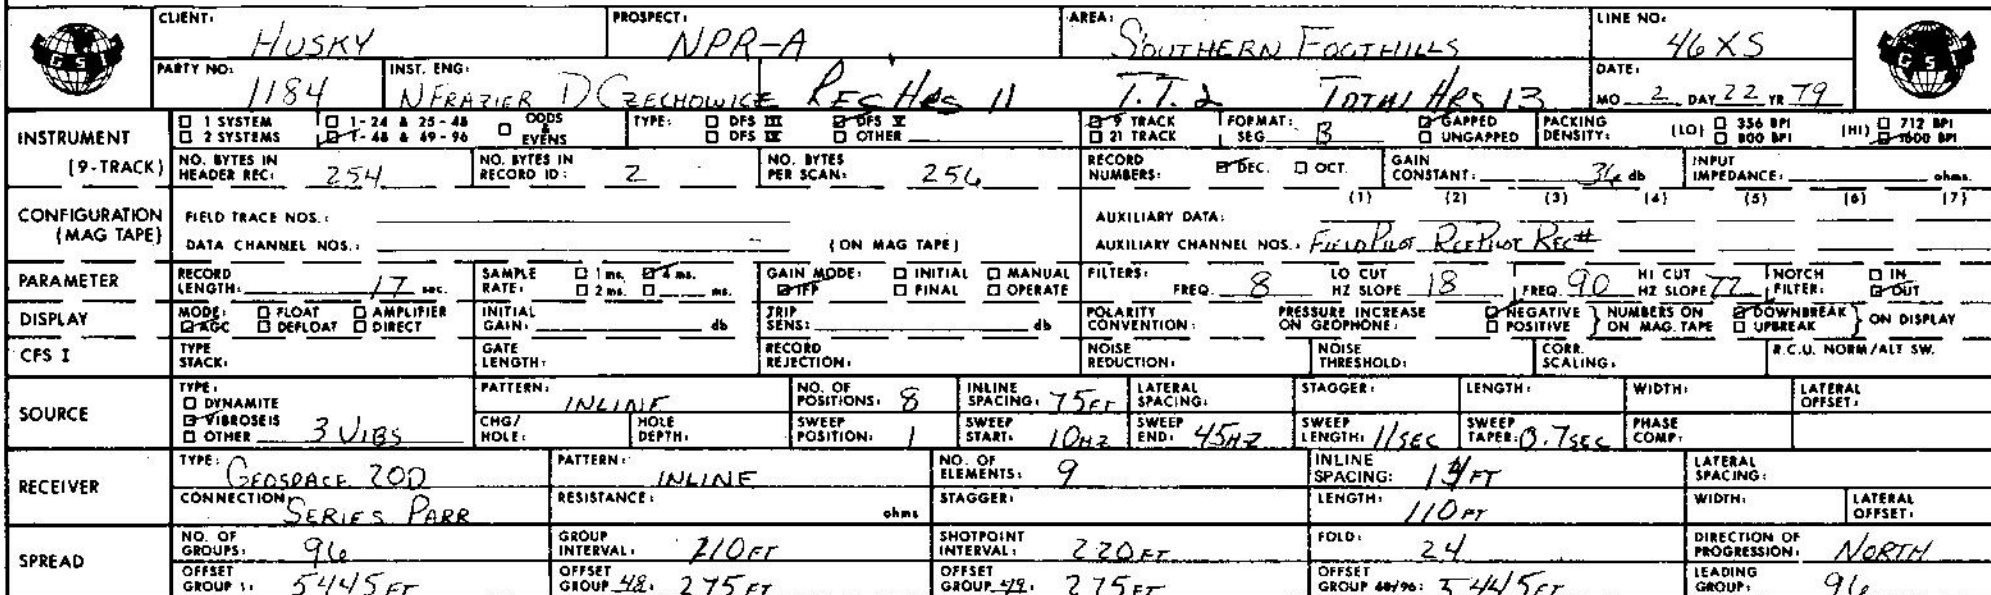 CLIENT: HUSKY PROSPECT: NPR-A AREA: SOUTHERN FOOTHILLS LINE NO: 46XS
GSI
PARTY NO: 1184 INST. ENG: N FRAZIER D CZECHOWICZ REC HRS 11 T.T. 2 TOTAL HRS 13 DATE: MO 2 DAY 22 YR 79
GSI
INSTRUMENT (9-TRACK)
1 SYSTEM 1-24 & 25-48 ODDS & EVENS TYPE: DFS III DFS V 9 TRACK FORMAT: SEG B GAPPED PACKING DENSITY: (LO) 356 BPI (HI) 712 BPI
2 SYSTEMS 1-48 & 49-96 DFS IV OTHER 21 TRACK UNGAPPED 800 BPI 1600 BPI
NO. BYTES IN HEADER REC: 254 NO. BYTES IN RECORD ID: 2 NO. BYTES PER SCAN: 256 RECORD NUMBERS: DEC. OCT. GAIN CONSTANT: 36 db INPUT IMPEDANCE: ohms.
CONFIGURATION (MAG TAPE)
(1) (2) (3) (4) (5) (6) (7)
FIELD TRACE NOS.: AUXILIARY DATA:
DATA CHANNEL NOS.: (ON MAG TAPE) AUXILIARY CHANNEL NOS.: FIELD PILOT RCE PILOT REC#
PARAMETER
RECORD LENGTH: 17 sec. SAMPLE RATE: 1 ms. 4 ms. 2 ms. ms. GAIN MODE: INITIAL MANUAL IFP FINAL OPERATE FILTERS: FREQ. 8 LO CUT HZ SLOPE 18 FREQ. 90 HI CUT HZ SLOPE 72 NOTCH FILTER: IN OUT
DISPLAY
MODE: FLOAT AMPLIFIER AGC DEFLOAT DIRECT INITIAL GAIN: db TRIP SENS: db POLARITY CONVENTION: PRESSURE INCREASE ON GEOPHONE: NEGATIVE POSITIVE NUMBERS ON ON MAG. TAPE DOWNBREAK UPBREAK ON DISPLAY
CFS I TYPE STACK: GATE LENGTH: RECORD REJECTION: NOISE REDUCTION: NOISE THRESHOLD: CORR. SCALING: R.C.U. NORM/ALT SW.
SOURCE
TYPE: DYNAMITE VIBROSEIS OTHER 3 VIBS
PATTERN: INLINE NO. OF POSITIONS: 8 INLINE SPACING: 75FT LATERAL SPACING: STAGGER: LENGTH: WIDTH: LATERAL OFFSET:
CHG/HOLE: HOLE DEPTH: SWEEP POSITION: 1 SWEEP START: 10HZ SWEEP END: 45HZ SWEEP LENGTH: 11SEC SWEEP TAPER: 0.7SEC PHASE COMP:
RECEIVER
TYPE: GEOSPACE 20D PATTERN: INLINE NO. OF ELEMENTS: 9 INLINE SPACING: FT LATERAL SPACING:
CONNECTION: SERIES PARR RESISTANCE: ohms STAGGER: LENGTH: 110 FT WIDTH: LATERAL OFFSET:
SPREAD
NO. OF GROUPS: 96 GROUP INTERVAL: 110 FT SHOTPOINT INTERVAL: 220 FT FOLD: 24 DIRECTION OF PROGRESSION: NORTH
OFFSET GROUP 1: 5445 FT OFFSET GROUP 48: 275 FT OFFSET GROUP 49: 275 FT OFFSET GROUP 48/96: 5445 FT LEADING GROUP: 96